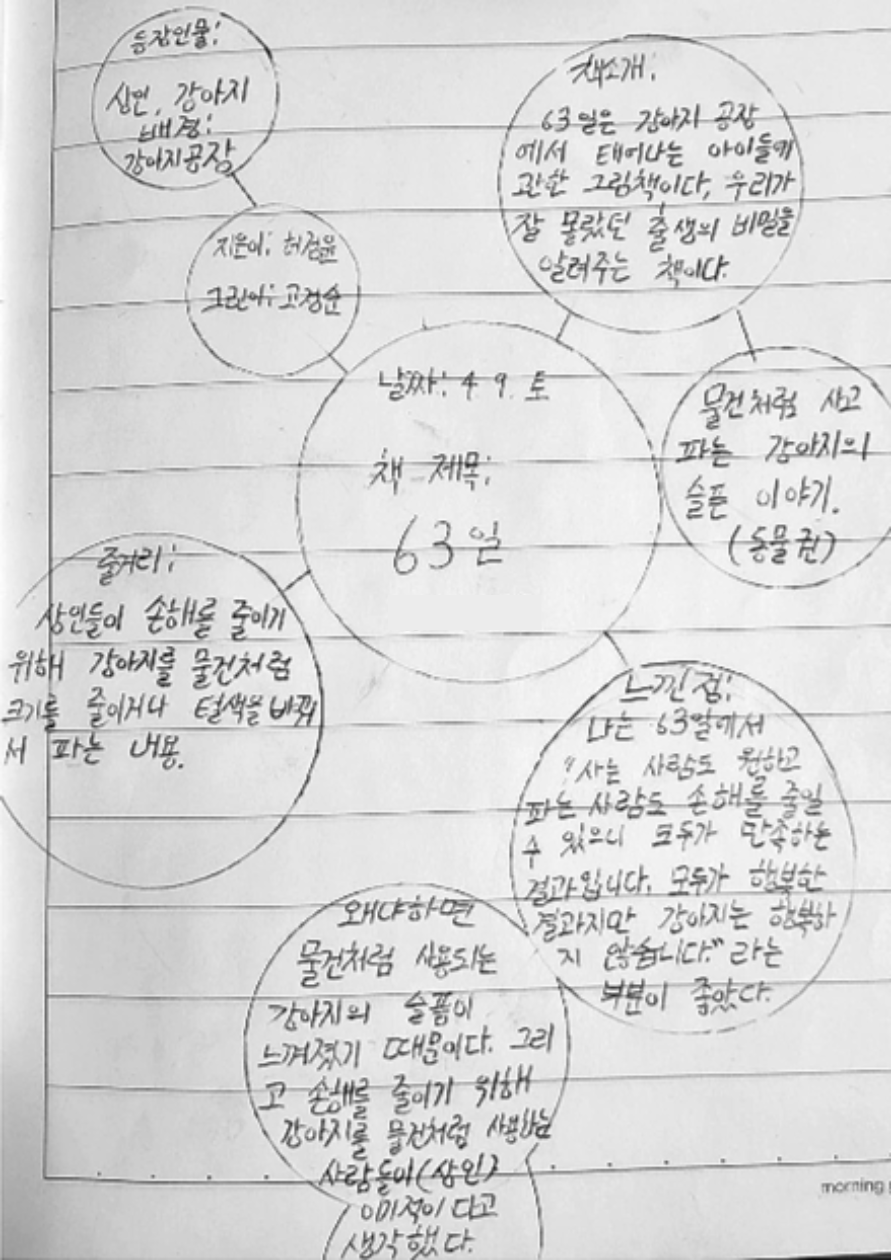 등장인물:
상인, 강아지
배경:
강아지공장
지은이: 허정윤
그린이: 고정순
책소개:
63일은 강아지 공장
에서 태어나는 아이들에
관한 그림책이다, 우리가
잘 몰랐던 출생의 비밀을
알려주는 책이다.
날짜: 4. 9. 토
책 제목:
63일
물건처럼 사고
파는 강아지의
슬픈 이야기.
(동물권)
줄거리:
상인들이 손해를 줄이기
위해 강아지를 물건처럼
크기를 줄이거나 털색을 바꿔
서 파는 내용.
느낀점:
나는 63일에서
"사는 사람도 원하고
파는 사람도 손해를 줄일
수 있으니 모두가 만족하는
결과입니다. 모두가 행복한
결과지만 강아지는 행복하
지 않습니다." 라는
부분이 좋았다.
왜냐하면
물건처럼 사용되는
강아지의 슬픔이
느껴졌기 때문이다. 그리
고 손해를 줄이기 위해
강아지를 물건처럼 사용하는
사람들이(상인)
이기적이다고
생각했다.
morning